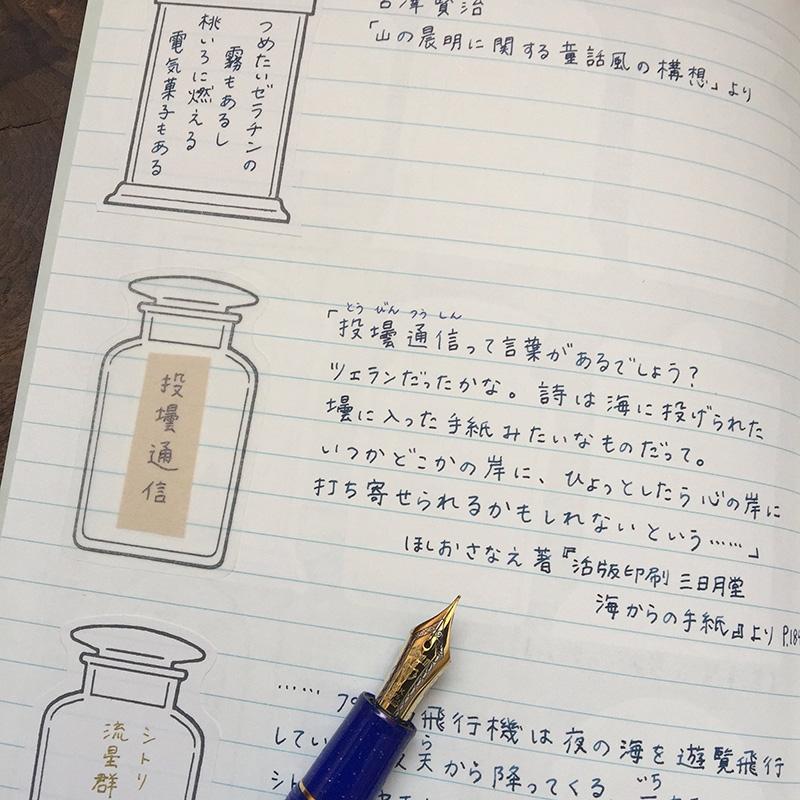 つめたいゼラチンの
霧もあるし
桃いろに燃える
電気菓子もある
宮澤賢治
「山の晨明に関する童話風の構想」より
投壜通信
とう びん つう しん
「投壜通信って言葉があるでしょう？
ツェランだったかな。詩は海に投げられた
壜に入った手紙みたいなものだって。
いつかどこかの岸に、ひょっとしたら心の岸に
打ち寄せられるかもしれないという……」
ほしおさなえ著『活版印刷三日月堂
海からの手紙』より P.18
シトリ
流星群
…… プ
飛行機は夜の海を遊覧飛行
してい
ら
天から降ってくる
いち
シト